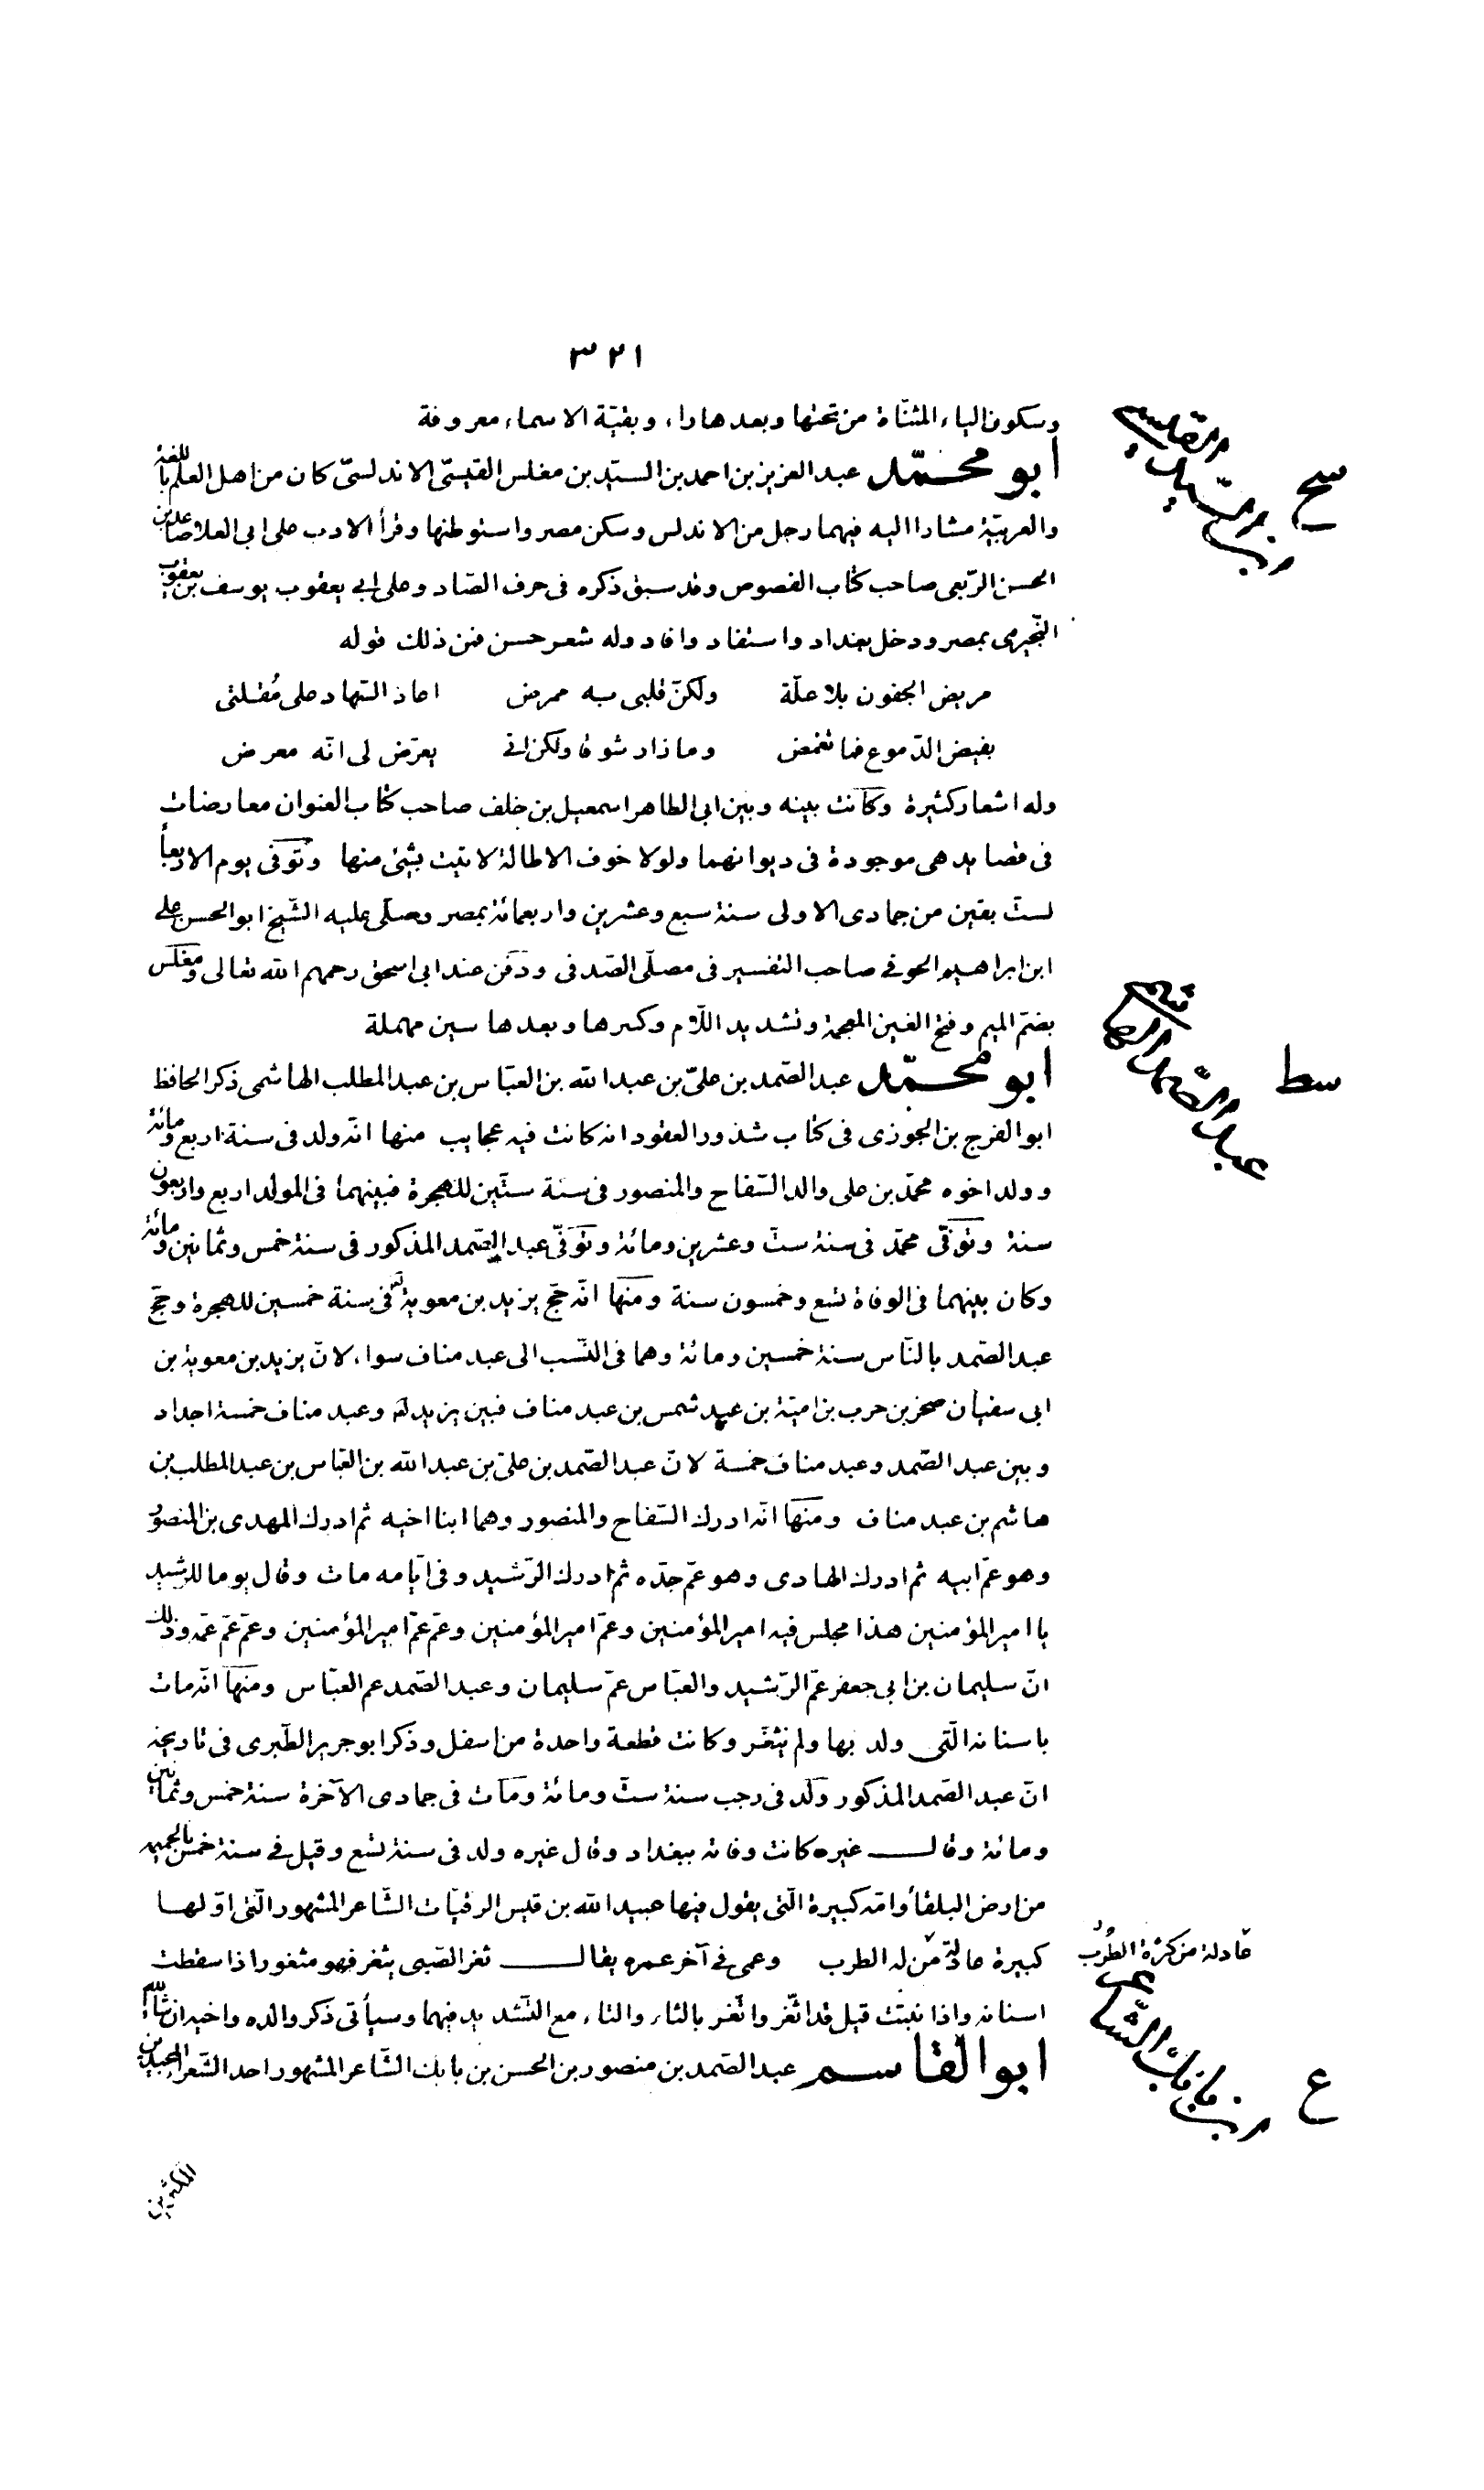 ٣٢١
وسكون الياء المثنّاة من تحتها وبعدها راء وبقيّة الاسماء معروفة
ابو محمّد عبد العزيز بن احمد بن السيّد بن مغلس القيسىّ الاندلسىّ كان من اهل العلم باللغة
والعربيّة مشارا اليه فيهما رحل من الاندلس وسكن مصر واستوطنها وقرأ الادب على ابى العلا صاعد بن
الحسن الرّبعى صاحب كتاب الفصوص وقد سبق ذكره فى حرف الصّاد وعلى ابى يعقوب يوسف بن يعقوب
النّجيرمى بمصر ودخل بغداد واستفاد وافاد وله شعر حسن فمن ذلك قوله
مريض الجفون بلا علّة ولكنّ قلبى به ممرض اعاذ السّهاد على مُقلتى
بفيض الدّموع فما تغمض وما زاد شوقا ولكن اتى يعرّض لى انّه معرض
وله اشعار كثيرة وكانت بينه وبين ابى الطاهر اسمعيل بن خلف صاحب كتاب العنوان معارضات
فى قصايد هى موجودة فى ديوانهما ولولا خوف الاطالة لاتيت بشئ منها وتوفّى يوم الاربعأ
لستّ بقين من جمادى الاولى سنة سبع وعشرين واربعمائة بمصر وصلّى عليه الشّيخ ابو الحسن على
ابن ابراهيم الحوفى صاحب التفسير فى مصلّى الصّدفى ودفن عند ابى اسحق رحمهم الله تعالى ومغلّس
بضمّ الميم وفتح الغين المعجمة وتشديد اللّام وكسرها وبعدها سين مهملة
ابو محمّد عبد الصّمد بن علىّ بن عبد الله بن العبّاس بن عبد المطلب الهاشمى ذكر الحافظ
ابو الفرج بن الجوزى فى كتاب شذور العقود انه كانت فيه عجايب منها انّه ولد فى سنة اربع ومائة
وولد اخوه محمّد بن على والد السّفاح والمنصور فى سنة ستّين للهجرة فبينهما فى المولد اربع واربعون
سنة وتوفّى محمّد فى سنة ستّ وعشرين ومائة وتوفّى عبد الصّمد المذكور فى سنة خمس وثمانين ومائة
وكان بينهما فى الوفاة تسع وخمسون سنة ومنها انّه حجّ يزيد بن معوية فى سنة خمسين للهجرة وحجّ
عبد الصّمد بالنّاس سنة خمسين ومائة وهما فى النّسب الى عبد مناف سواء لانّ يزيد بن معوية بن
ابى سفيان صخر بن حرب بن اميّة بن عبد شمس بن عبد مناف فبين يزيد وعبد مناف خمسة اجداد
وبين عبد الصّمد وعبد مناف خمسة لانّ عبد الصّمد بن علىّ بن عبد الله بن العبّاس بن عبد المطلب بن
هاشم بن عبد مناف ومنها انّه ادرك السّفاح والمنصور وهما ابنا اخيه ثم ادرك المهدى بن المنصور
وهو عمّ ابيه ثم ادرك الهادى وهو عمّ جدّه ثم ادرك الرّشيد وفى ايّامه مات وقال يوما للرشيد
يا امير المؤمنين هذا مجلس فيه امير المؤمنين وعمّ امير المؤمنين وعمّ عمّ امير المؤمنين وعمّ عمّ عمّه وذلك
انّ سليمان بن ابى جعفر عمّ الرّشيد والعبّاس عمّ سليمان وعبد الصّمد عم العبّاس ومنها انّه مات
باسنانه الّتى ولد بها ولم يثغّر وكانت قطعة واحدة من اسفل وذكر ابو جرير الطّبرى فى تاريخه
انّ عبد الصّمد المذكور ولد فى رجب سنة ستّ ومائة ومات فى جمادى الآخرة سنة خمس وثمانين
ومائة وقال غيره كانت وفاته ببغداد وقال غيره ولد فى سنة تسع وقيل فى سنة خمس بالحميمه
من ارض البلقأ وامّه كبيرة الّتى يقول فيها عبيد الله بن قيس الرقيّات الشّاعر المشهور الّتى اوّلها
عادلة من كثرة الطُرُب
كبيرة عادلة من له الطرب وعمى فى آخر عمره يقال ثغر الصّبى يثغر فهو مثغور اذا سقطت
اسنانه واذا نبتت قيل قد اثّغر واتّغر بالثاء والتاء مع التّشديد فيهما وسيأتى ذكر والده واخيه ان شاء الله
ابو القاسم عبد الصّمد بن منصور بن الحسن بن بابك الشّاعر المشهور احد الشّعراء المجيدين
المكثرين
سح
ابن السّيد القليسى
سط
عبد الصّمد الهاشمى
ع
ابن بابك الشّاعر